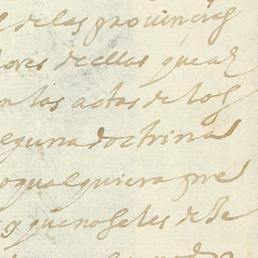 de las provincias
ores de ellas que al
en las actas de los
eguna doctrina
o qualquiera pre
s y que no se les debe